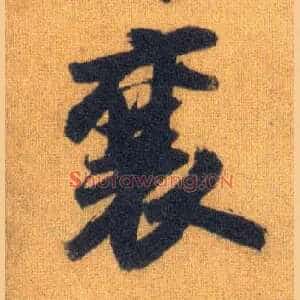 襄
Shufawang.CN